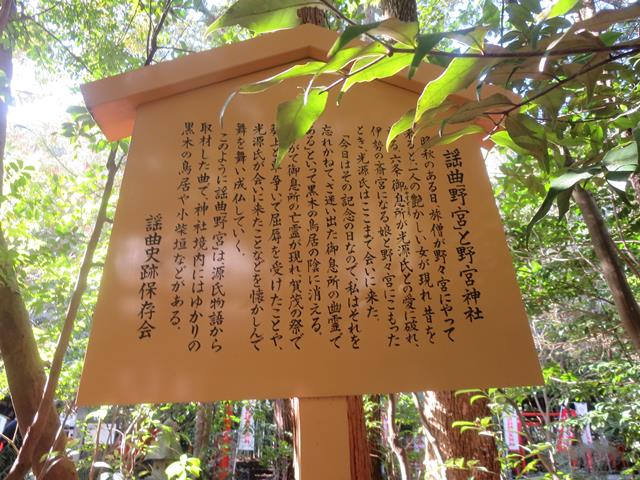 謡曲「野宮」と野宮神社
晩秋のある日、旅僧が野々宮にやって
来ると一人の艶かしい女が現れ、昔を
る。六条御息所が光源氏との愛に破れ、
伊勢の斎宮になる娘と野々宮にこもった
とき、光源氏はここまで会いに来た。
「今日はその記念の日なので、私はそれを
忘れかねて、さ迷い出た御息所の幽霊で
ある」といって黒木の鳥居の陰に消える。
がて御息所の亡霊が現れ、賀茂の祭で
葵上と車争いで屈辱を受けたことや、
光源氏が会いに来たことなどを懐かしんで
舞を舞い、成仏していく。
このように謡曲「野宮」は源氏物語から
取材した曲で、神社境内にはゆかりの
黒木の鳥居や小柴垣などがある。
謡曲史跡保存会